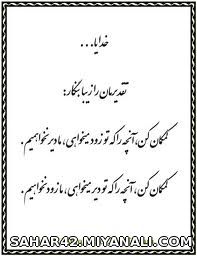 خدایا...
تقدیرمان را زیبا بنگار:
کمکمان کن، آنچه را که تو زود میخواهی، ما دیر نخواهیم.
کمکمان کن، آنچه را که تو دیر میخواهی، ما زود نخواهیم.
SAHAR42.MIYANALI.COM